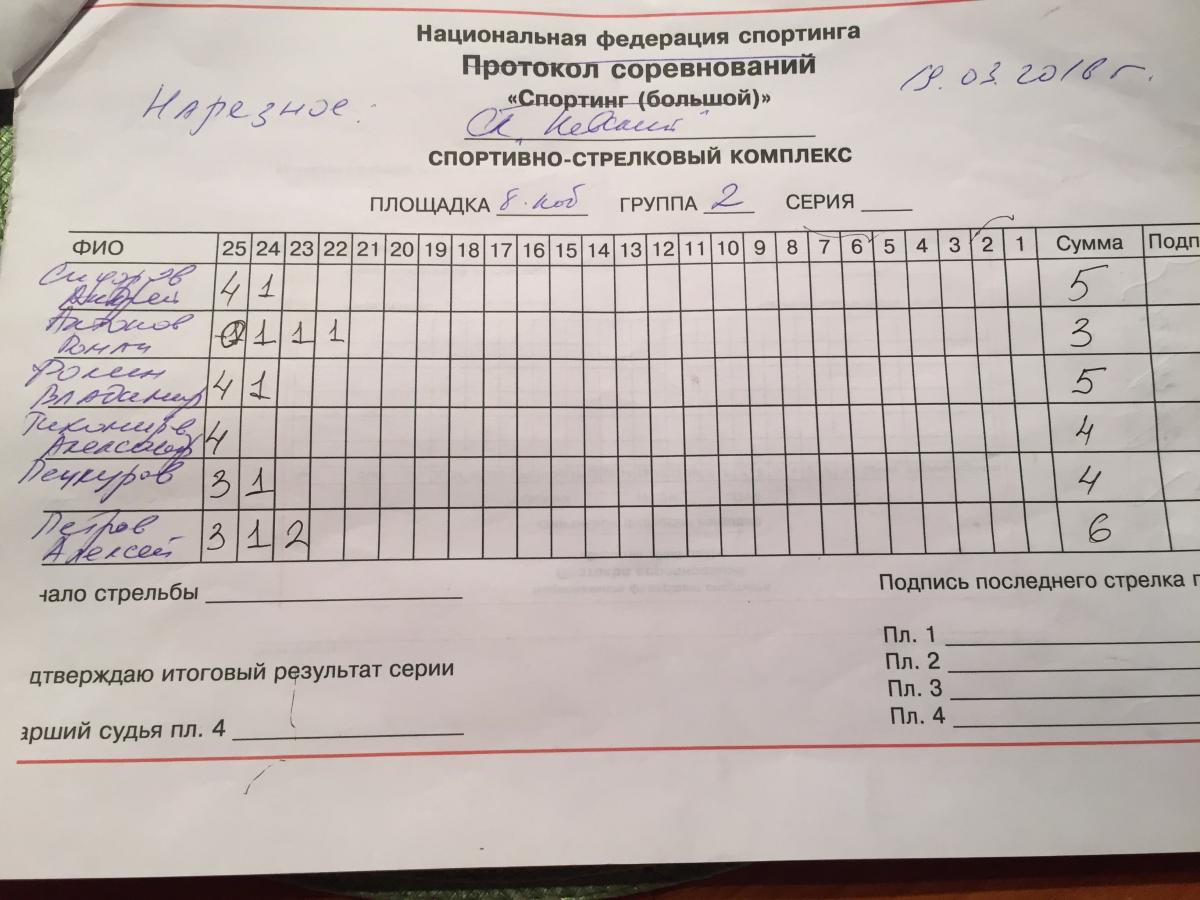 Национальная федерация спортинга
Протокол соревнований
19.03.2016 г.
«Спортинг (большой)»
Нарезное:
СК "Невский"
СПОРТИВНО-СТРЕЛКОВЫЙ КОМПЛЕКС
ПЛОЩАДКА 8. коб ГРУППА 2 СЕРИЯ
ФИО 25 24 23 22 21 20 19 18 17 16 15 14 13 12 11 10 9 8 7 6 5 4 3 2 1 Сумма Подп
Сидоров
Андрей 4 1 5
Антонов
Роман 1 1 1 3
Фомин
Владимир 4 1 5
Тихомиров
Александр 4 4
Печкуров 3 1 4
Петров
Алексей 3 1 2 6
чало стрельбы
Подпись последнего стрелка г
Пл. 1
дтверждаю итоговый результат серии
Пл. 2
Пл. 3
арший судья пл. 4
Пл. 4